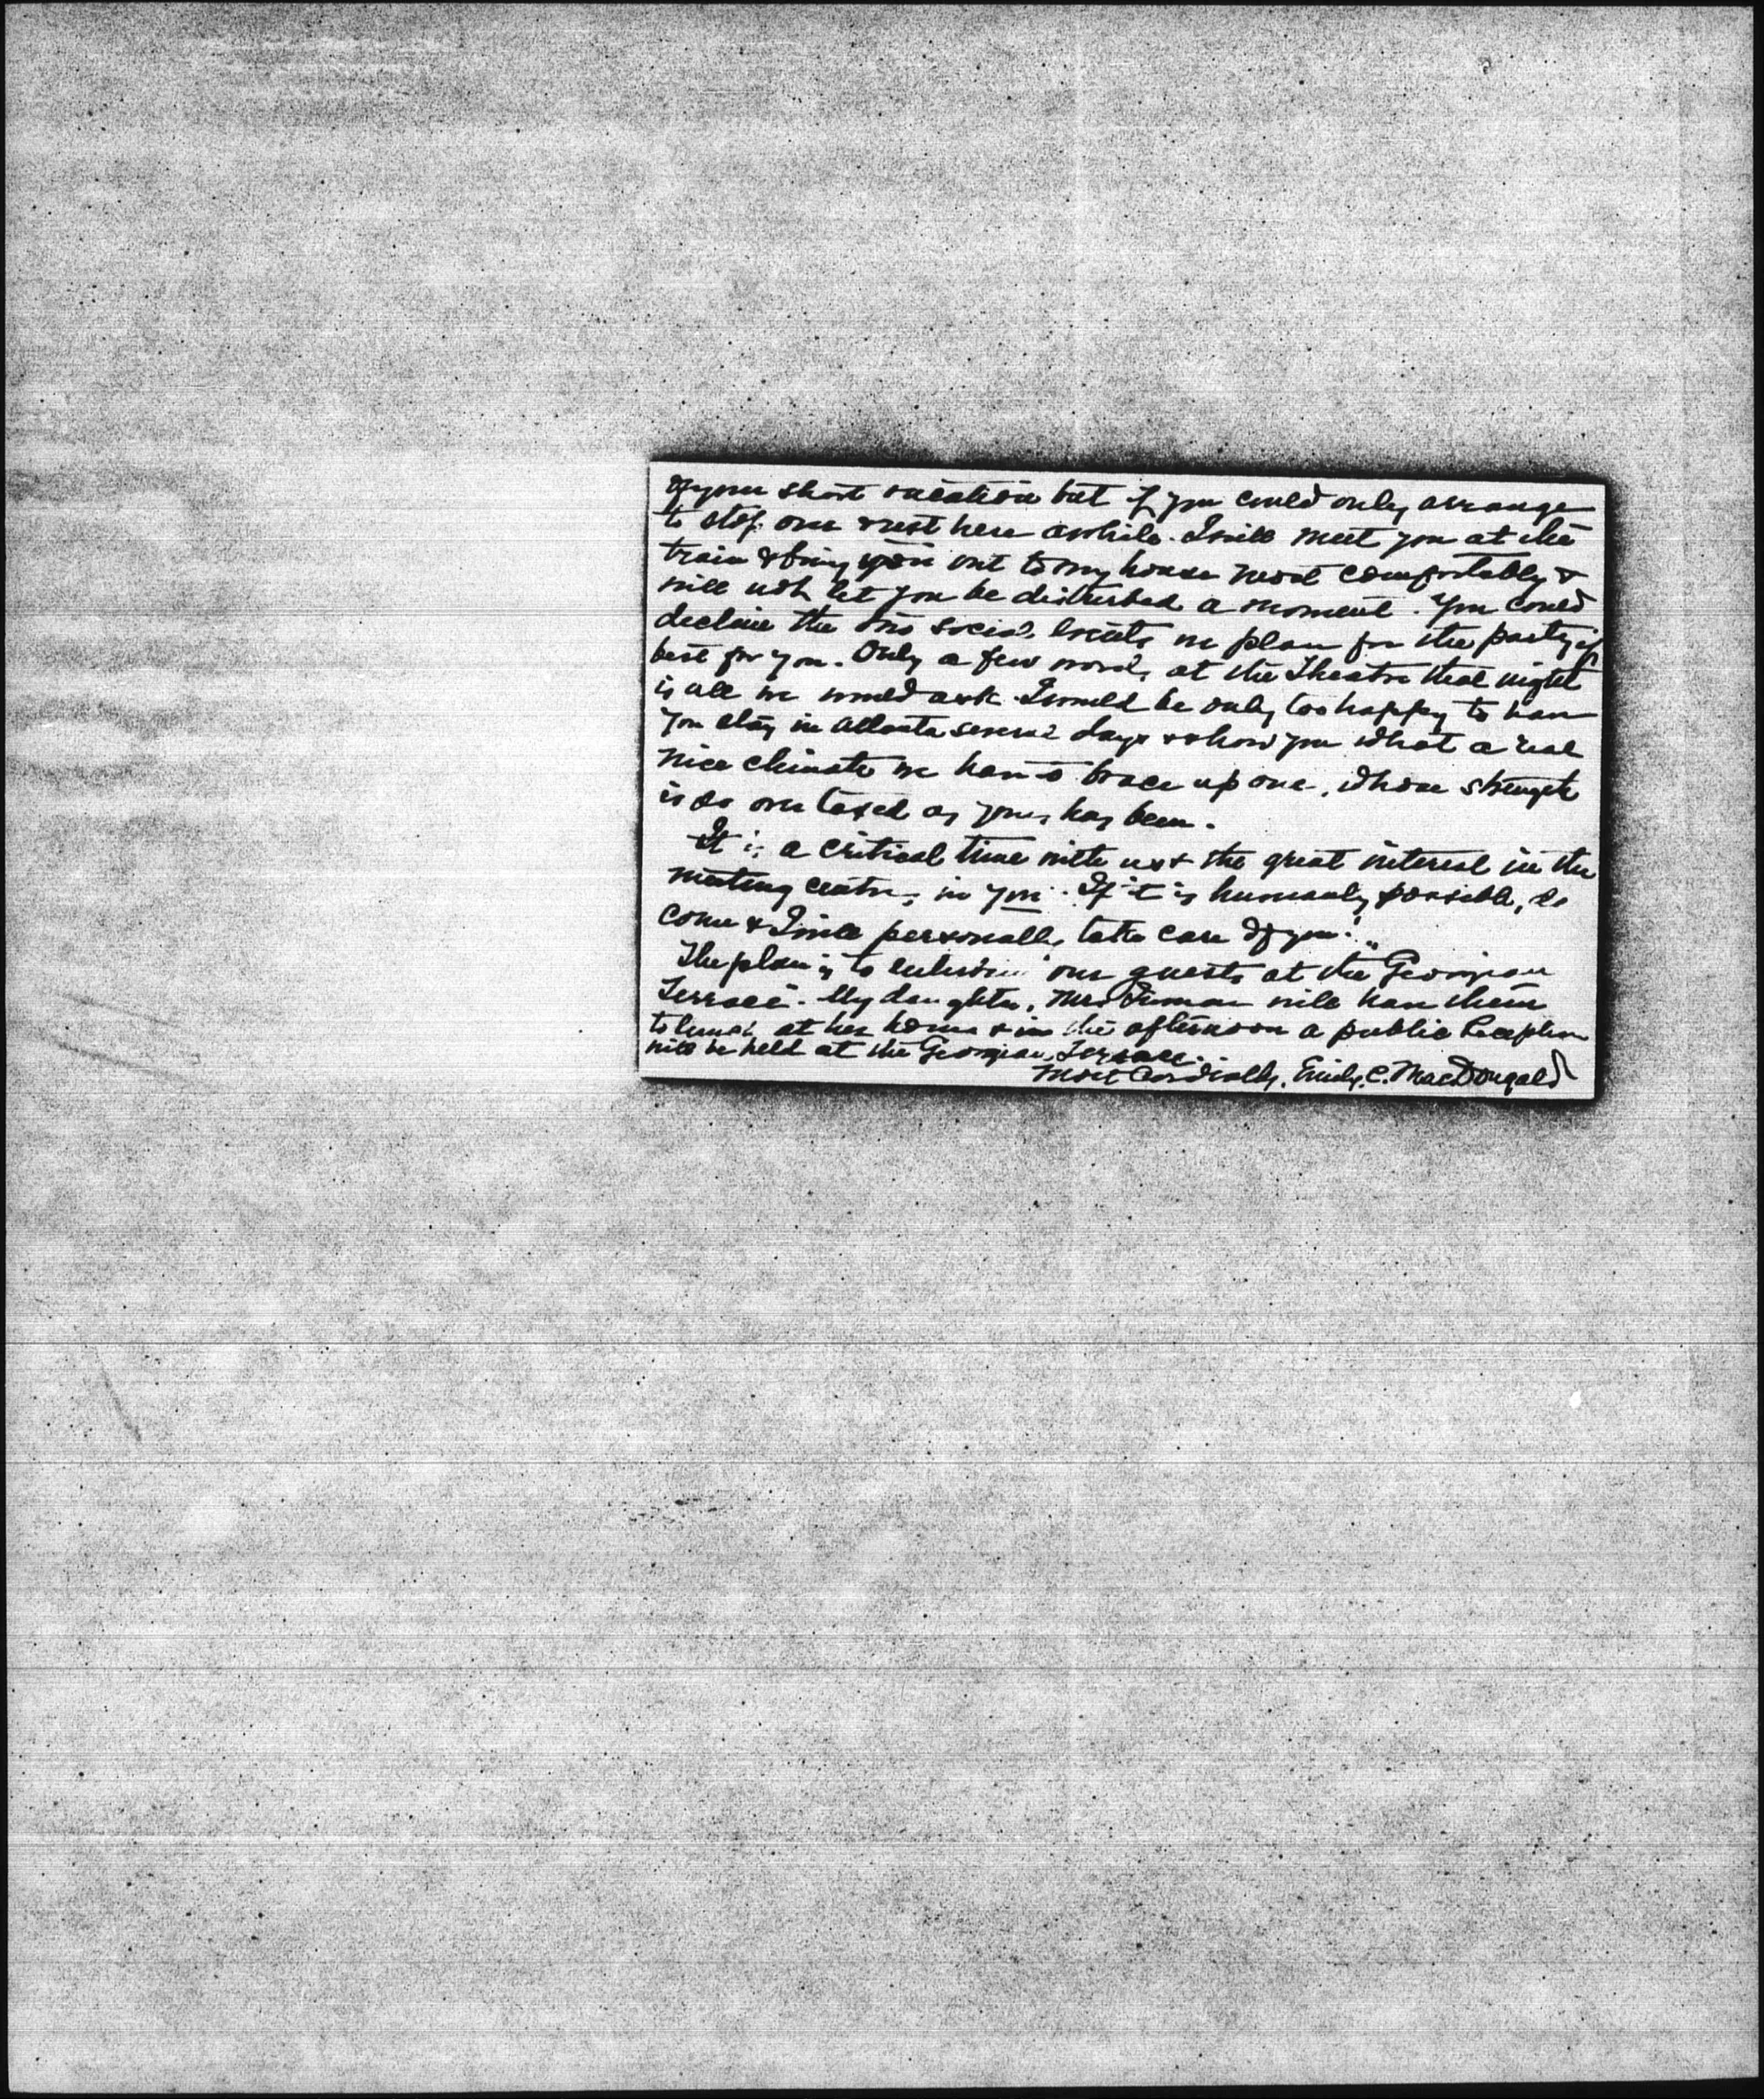 of your short vacation but if you could only arrange
to stop over & rest here awhile. I will meet you at the
train & bring you out to my house most comfortably &
will not let you be disturbed a moment. You could
decline the two social events we plan for the party if
best for you. Only a few words at the Theatre that night
is all we would ask. I would be only too happy to have
you stay in Atlanta several days & show you what a real
nice climate we have to brace up one, whose strength
is so over taxed as yours has been.
It is a critical time with us & the great interest in the
meeting centers in you. If it is humanly possible, do
come & I will personally take care of you!
The plan is to our guests at the "Georgian
Terrace". My daughter, Mrs. will have them
to lunch at her home & in the afternoon a public reception
will be held at the Georgian Terrace.
Most Cordially, Emily C. MacDougald